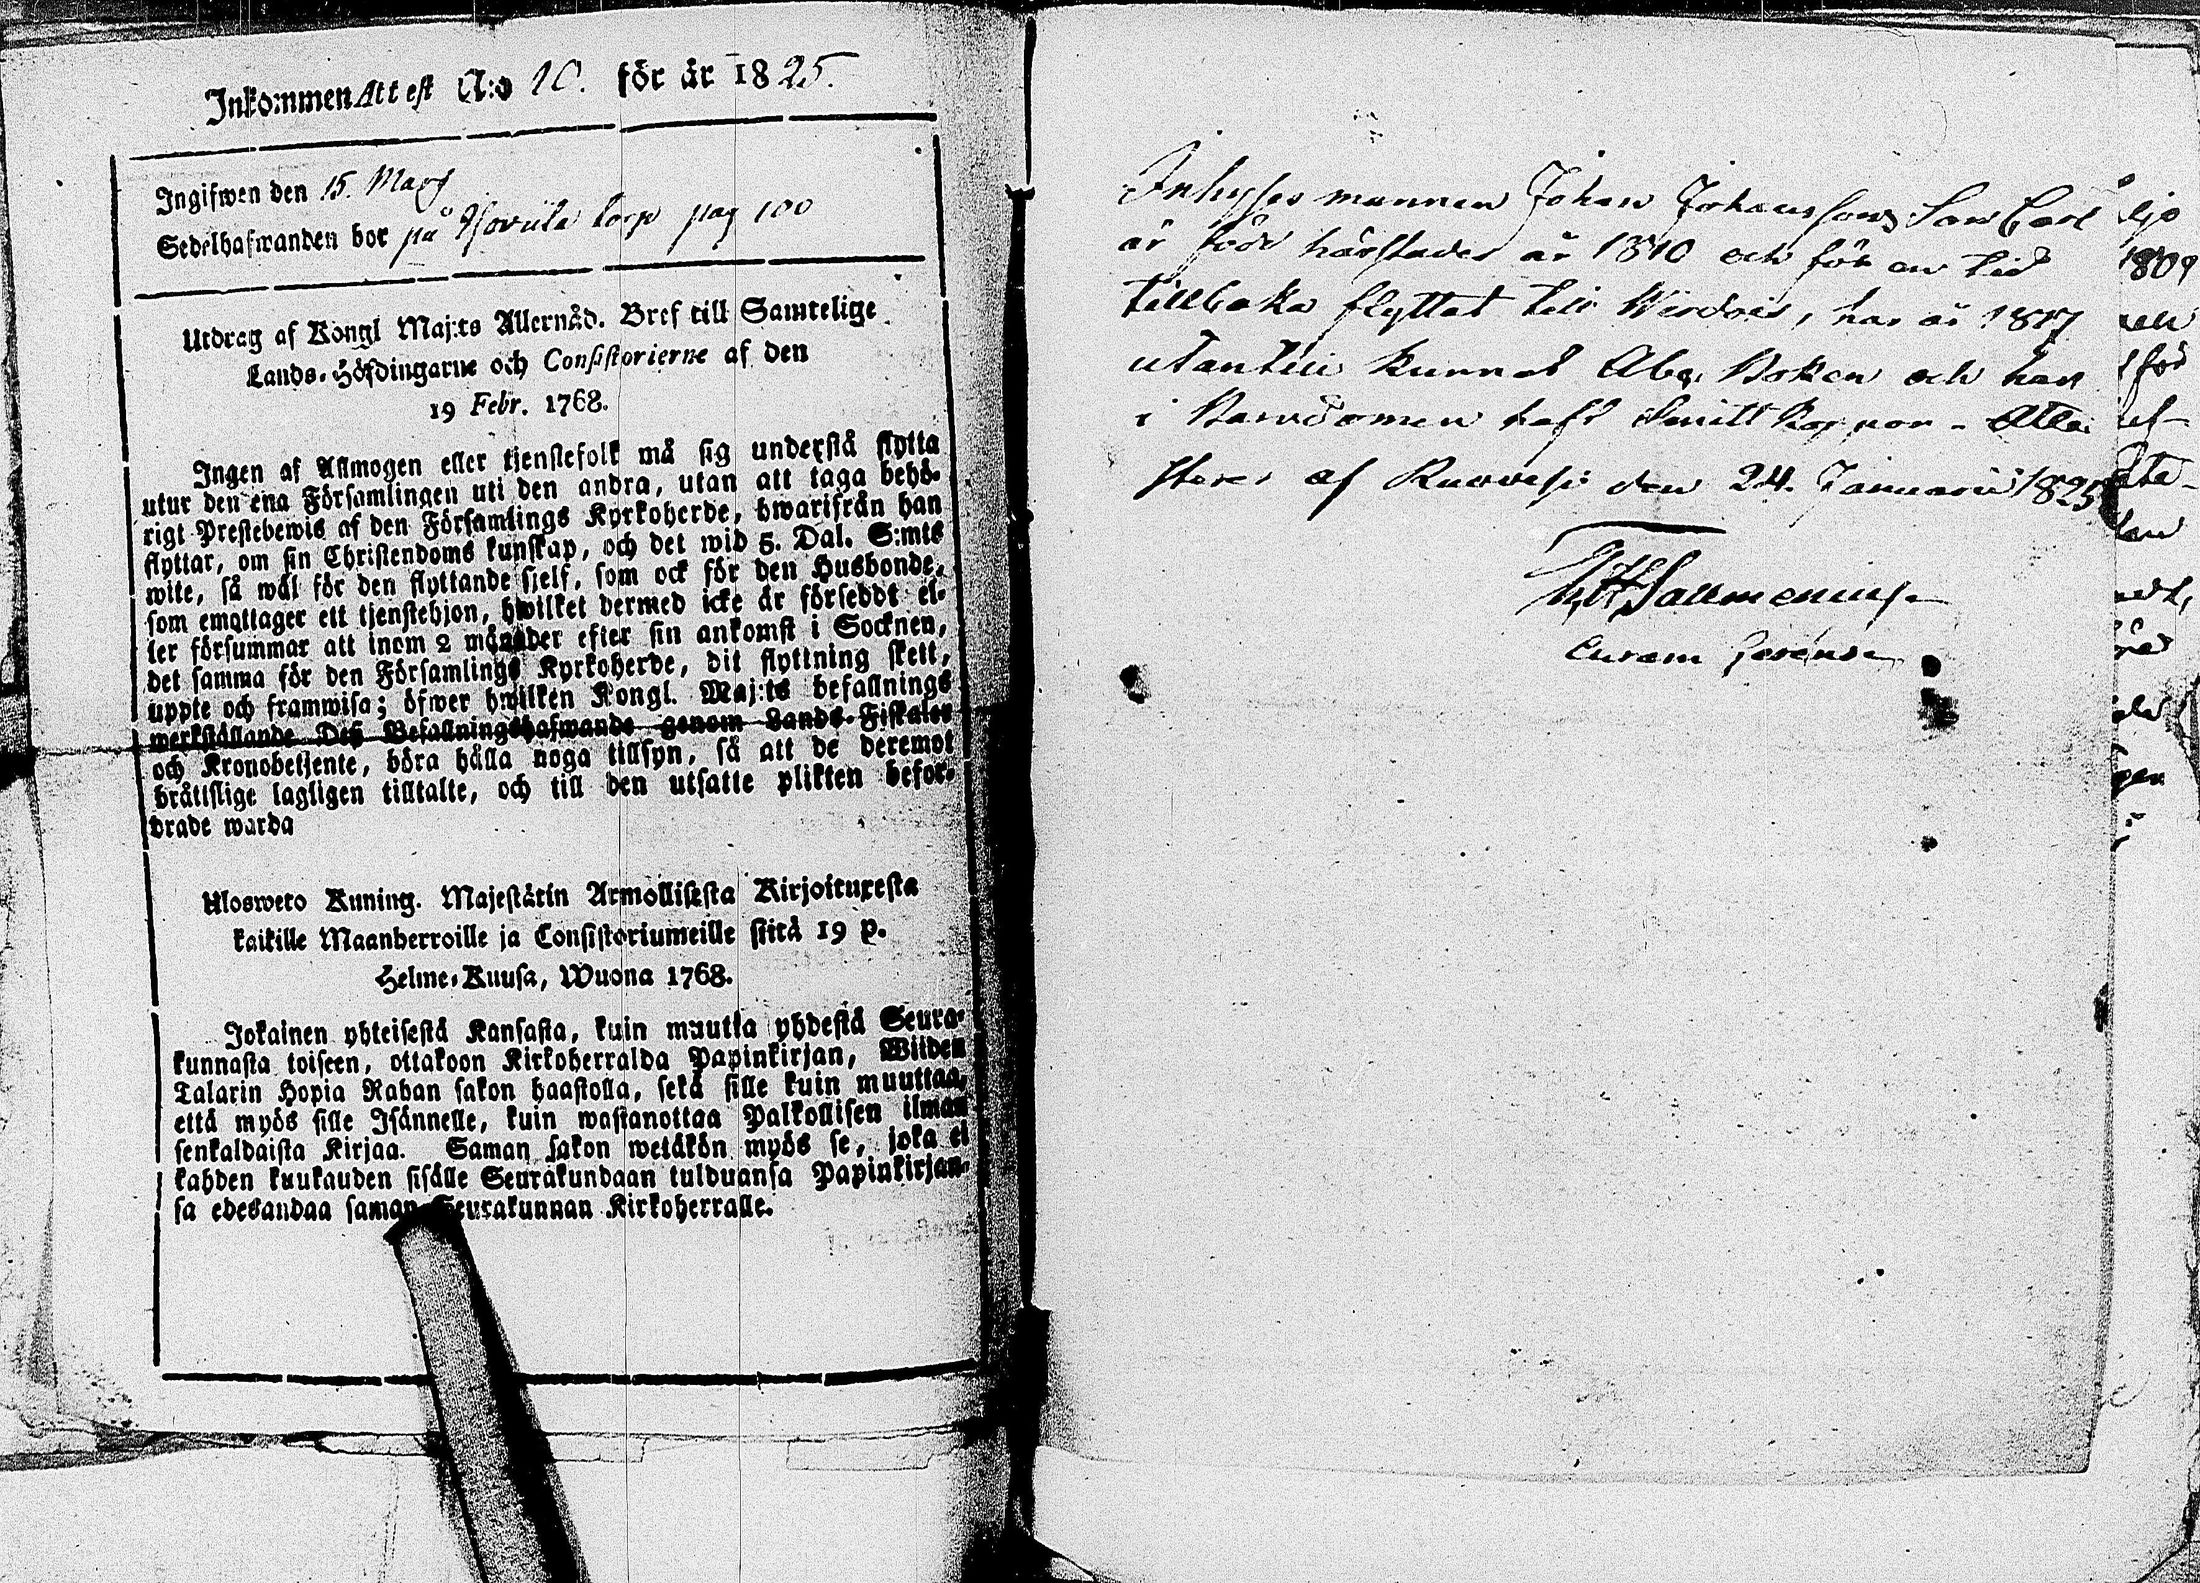 Inkommen Attest N:o 10. för år 1825.
Ingifwen den 15. Mars
Sedelhafwanden bor på torp pag 100
Utdrag af Kongl Maj:ts Allernåd. Bref till Samtelige
Lands-Höfdingarne och Consistorierne af den
19 Febr. 1768.
Ingen af Allmogen eller tjenstefolk må sig understå flytta
utur den ena Församlingen uti den andra, utan att taga behö-
rigt Prestebewis af den Församlings Kyrkoherde, hwarifrån han
flyttar, om sin Christendoms kunskap, och det wid 5. Dal. S:mts
wite, så wäl för den flyttande sjelf, som ock för den Husbonde,
som emottager ett tjenstehjon, hwilket dermed icke är försedt el-
ler försummar att inom 2 månader efter sin ankomst i Socknen,
det samma för den Församlings Kyrkoherde, dit flyttning skett,
uppte och framwisa; öfwer hwilken Kongl. Maj:ts befallnings
werkställande Deß Befallningshafwande genom Lands-Fiskaler
och Kronobetjente, böra hålla noga tillsyn, så att de deremot
bråttslige lagligen tilltalte, och till den utsatte plikten befor-
drade warda
Ulosweto Kuning. Majestätin Armollisesta Kirjoituxesta
kaikille Maanherroille ja Consistoriumeille siitä 19 p.
Helme-Kuusa, Wuona 1768.
Jokainen yhteisestä Kansasta, kuin muutta yhdestä Seura-
kunnasta toiseen, ottakoon Kirkoherralda Papinkirjan, Wiiden
Talarin Hopia Rahan sakon haastolla, sekä sille kuin muuttaa,
että myös sille Isännelle, kuin wastanottaa Palkollisen ilman
senkaldaista Kirjaa. Saman sakon wetäkön myös se, joka ei
kahden kuukauden sisälle Seurakundaan tulduansa Papinkirjan-
sa edesandaa saman Seurakunnan Kirkoherralle.
Inhyses mannen Johan Johanssons Son Carl
är född härstädes år 1810 och för en tid
tillbaka flyttat till Wirdois, har år 1817
utantill kunnat Abc Boken och har
i Barndomen haft Smittkoppor. Atte-
steres af Ruovesi den 24. Januarii 1825
Sallmenius
Curam gerens